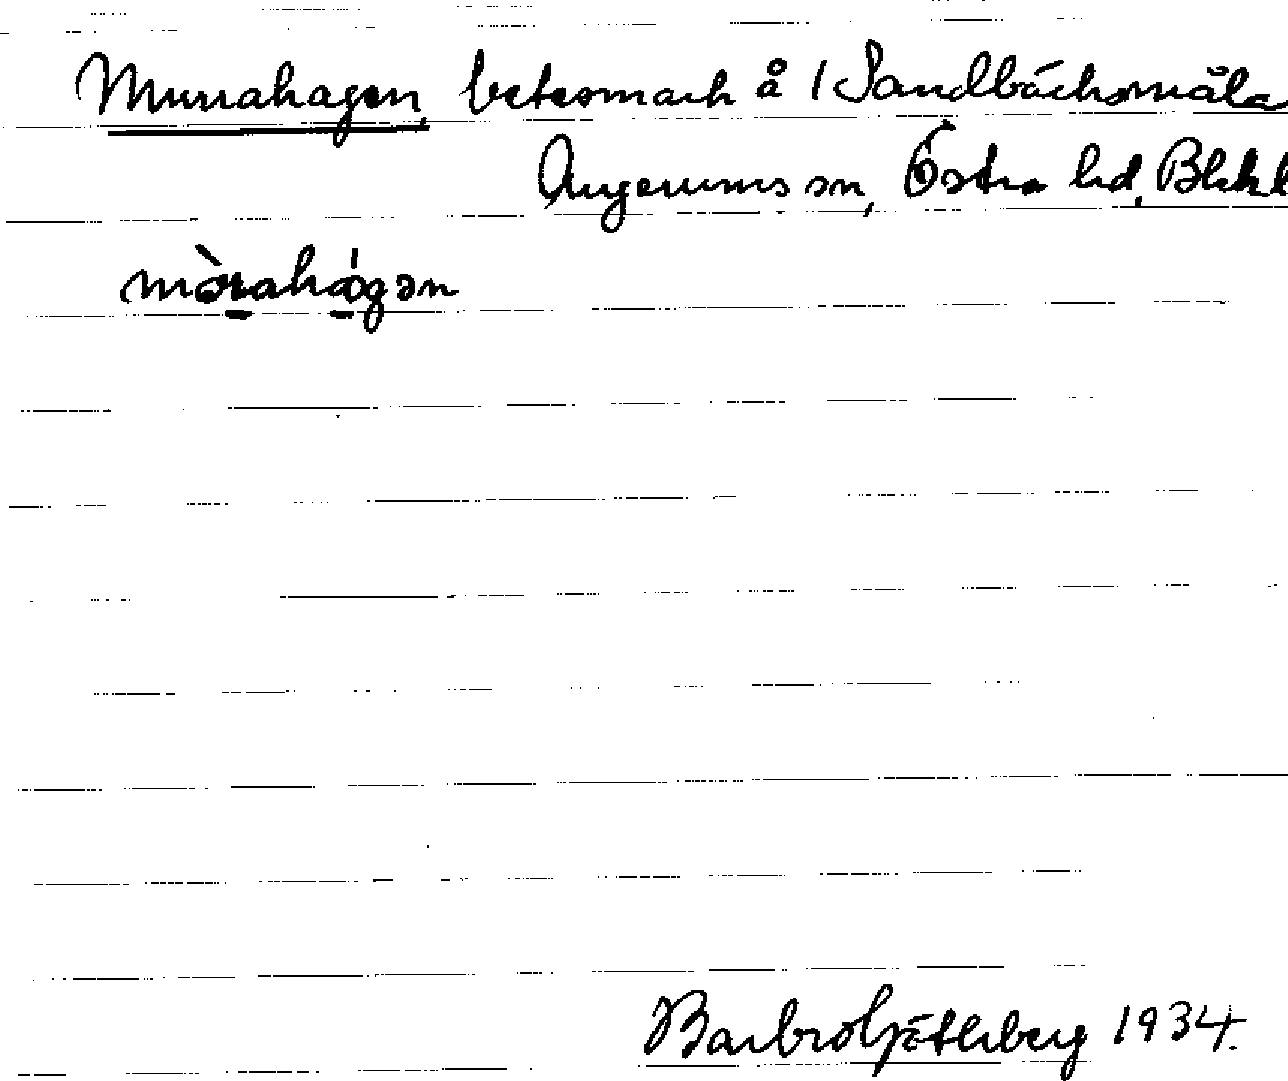 Murrahagen, betesmark å 1 Sandbäcksmåla
Augerums sn, Östra hd, Blek
mòrahágən
Barbro Götlberg 1934.